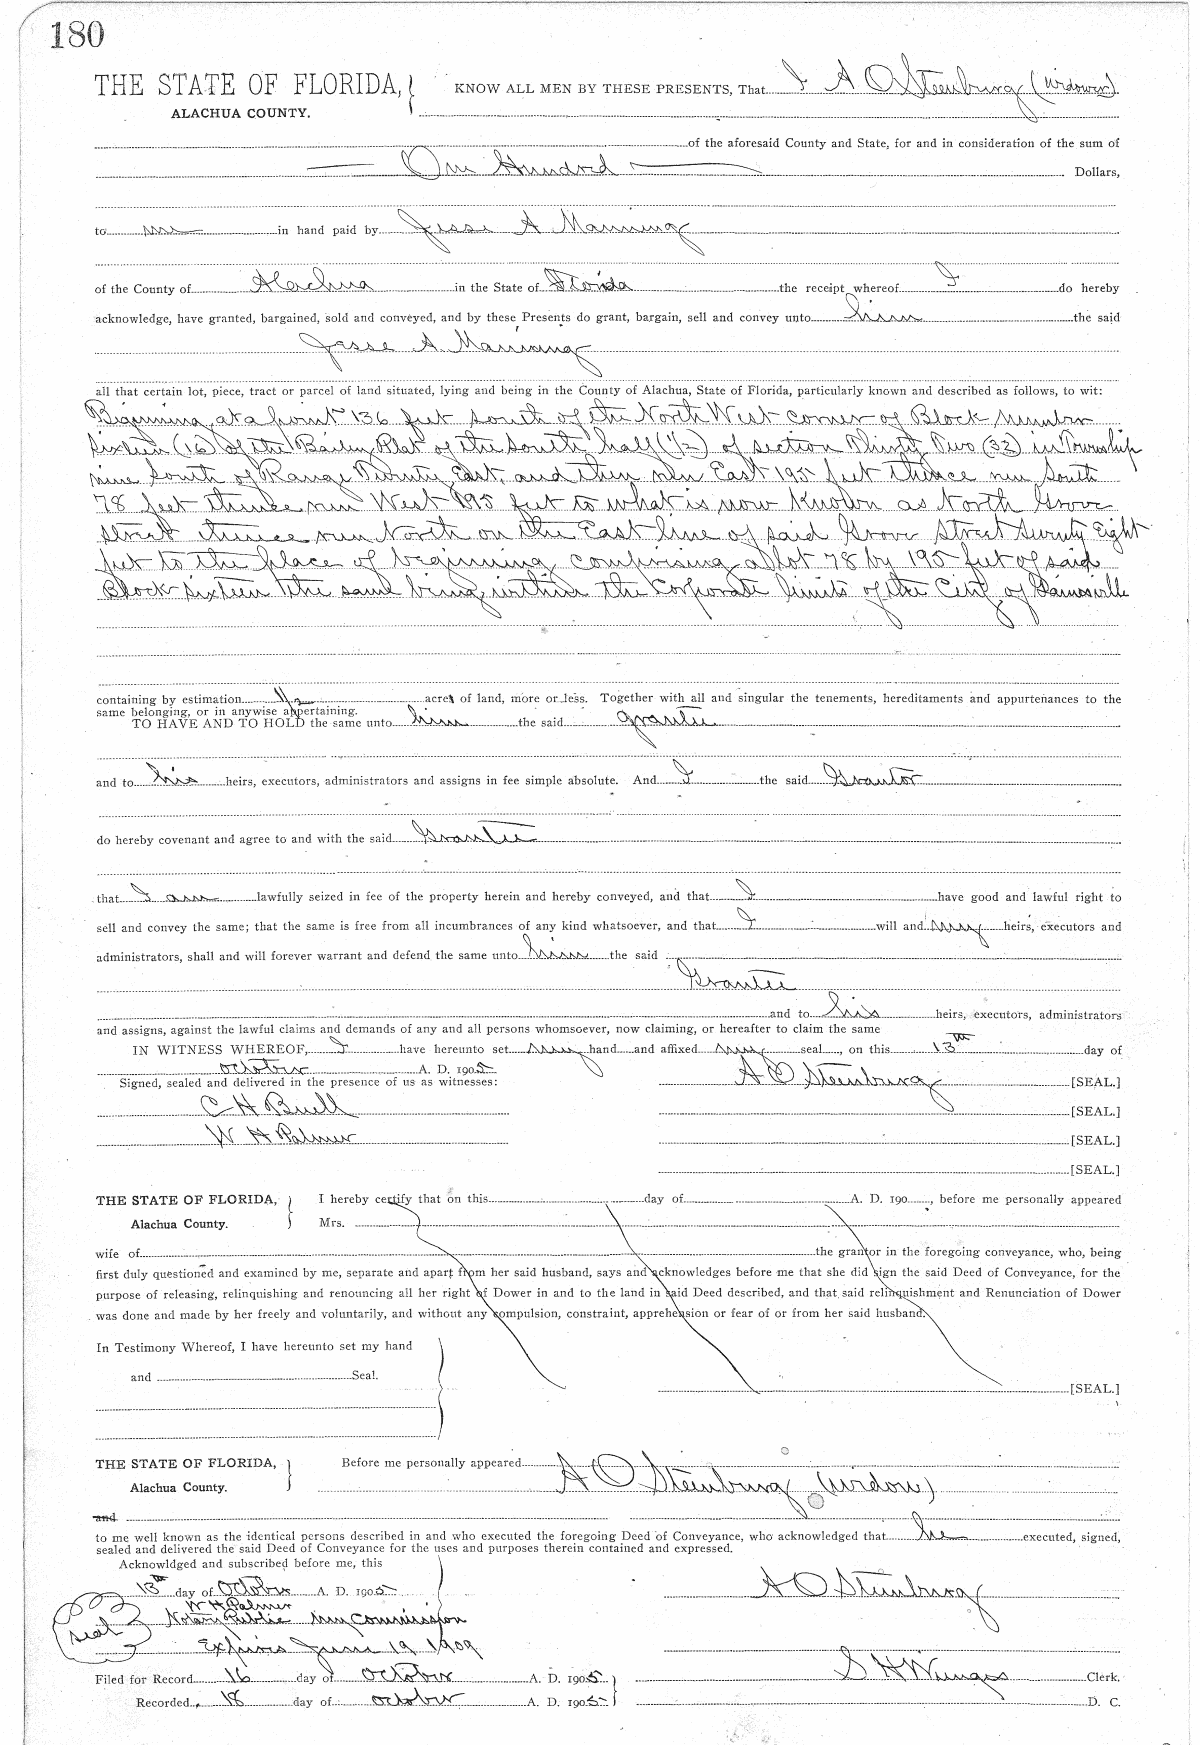 180
THE STATE OF FLORIDA, KNOW ALL MEN BY THESE PRESENTS, That I A O Steenburg (widower)
ALACHUA COUNTY.
of the aforesaid County and State, for and in consideration of the sum of
One Hundred Dollars,
to me in hand paid by Jesse A Manning
of the County of Alachua in the State of Florida the receipt whereof I do hereby
acknowledge, have granted, bargained, sold and conveyed, and by these Presents do grant, bargain, sell and convey unto him the said
Jesse A Manning
all that certain lot, piece, tract or parcel of land situated, lying and being in the County of Alachua, State of Florida, particularly known and described as follows, to wit:
Beginning at a point 136 feet south of the North West corner of Block number
sixteen (16) of the Bailey Plat of the South half (1/2) of section Thirty Two (32) in Township
nine South of Range Twenty East, and then run East 195 feet thence run South
78 feet thence run West 195 feet to what is now Known as North Grove
Street thence run North on the East line of said Grove Street Seventy Eight
feet to the place of beginning comprising a lot 78 by 195 feet of said
Block sixteen the same being within the Corporate limits of the City of Gainesville
containing by estimation 1/2 acre of land, more or less. Together with all and singular the tenements, hereditaments and appurtenances to the
same belonging, or in anywise appertaining.
TO HAVE AND TO HOLD the same unto him the said grantee
and to his heirs, executors, administrators and assigns in fee simple absolute. And I the said Grantor
do hereby covenant and agree to and with the said Grantee
that I am lawfully seized in fee of the property herein and hereby conveyed, and that I have good and lawful right to
sell and convey the same; that the same is free from all incumbrances of any kind whatsoever, and that I will and my heirs, executors and
administrators, shall and will forever warrant and defend the same unto him the said
Grantee
and to his heirs, executors, administrators
and assigns, against the lawful claims and demands of any and all persons whomsoever, now claiming, or hereafter to claim the same
IN WITNESS WHEREOF, I have hereunto set my hand and affixed my seal, on this 13th day of
October A. D. 1905 A O Steenburg [SEAL.]
Signed, sealed and delivered in the presence of us as witnesses:
C H Buell [SEAL.]
W H Palmer [SEAL.]
[SEAL.]
THE STATE OF FLORIDA, I hereby certify that on this day of A. D. 190 , before me personally appeared
Alachua County. Mrs.
wife of the grantor in the foregoing conveyance, who, being
first duly questioned and examined by me, separate and apart from her said husband, says and acknowledges before me that she did sign the said Deed of Conveyance, for the
purpose of releasing, relinquishing and renouncing all her right of Dower in and to the land in said Deed described, and that said relinquishment and Renunciation of Dower
was done and made by her freely and voluntarily, and without any compulsion, constraint, apprehension or fear of or from her said husband.
In Testimony Whereof, I have hereunto set my hand
and Seal.
[SEAL.]
THE STATE OF FLORIDA, Before me personally appeared A O Steenburg (widow)
Alachua County.
and
to me well known as the identical persons described in and who executed the foregoing Deed of Conveyance, who acknowledged that he executed, signed,
sealed and delivered the said Deed of Conveyance for the uses and purposes therein contained and expressed.
Acknowldged and subscribed before me, this
13th day of October A. D. 1905 A O Steenburg
W H Palmer
Seal Notary Public My Commission
Expires June 19 1909
Filed for Record 16 day of October A. D. 1905 S H Wienges Clerk.
Recorded 18 day of October A. D. 1905 D. C.